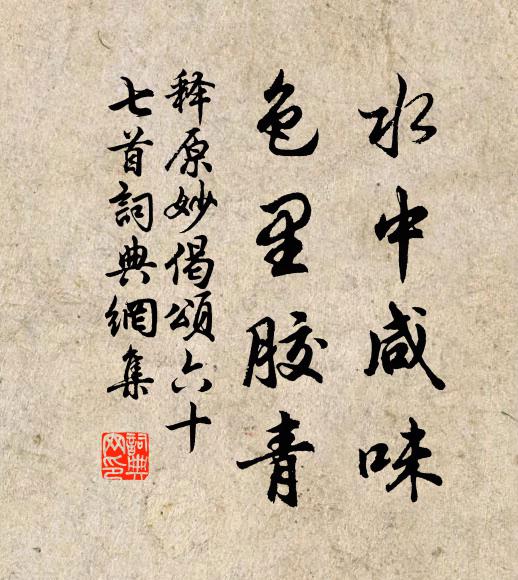 水中咸味
色里胶青
释原妙偈颂六十
七首詞典網集
詞典
网印